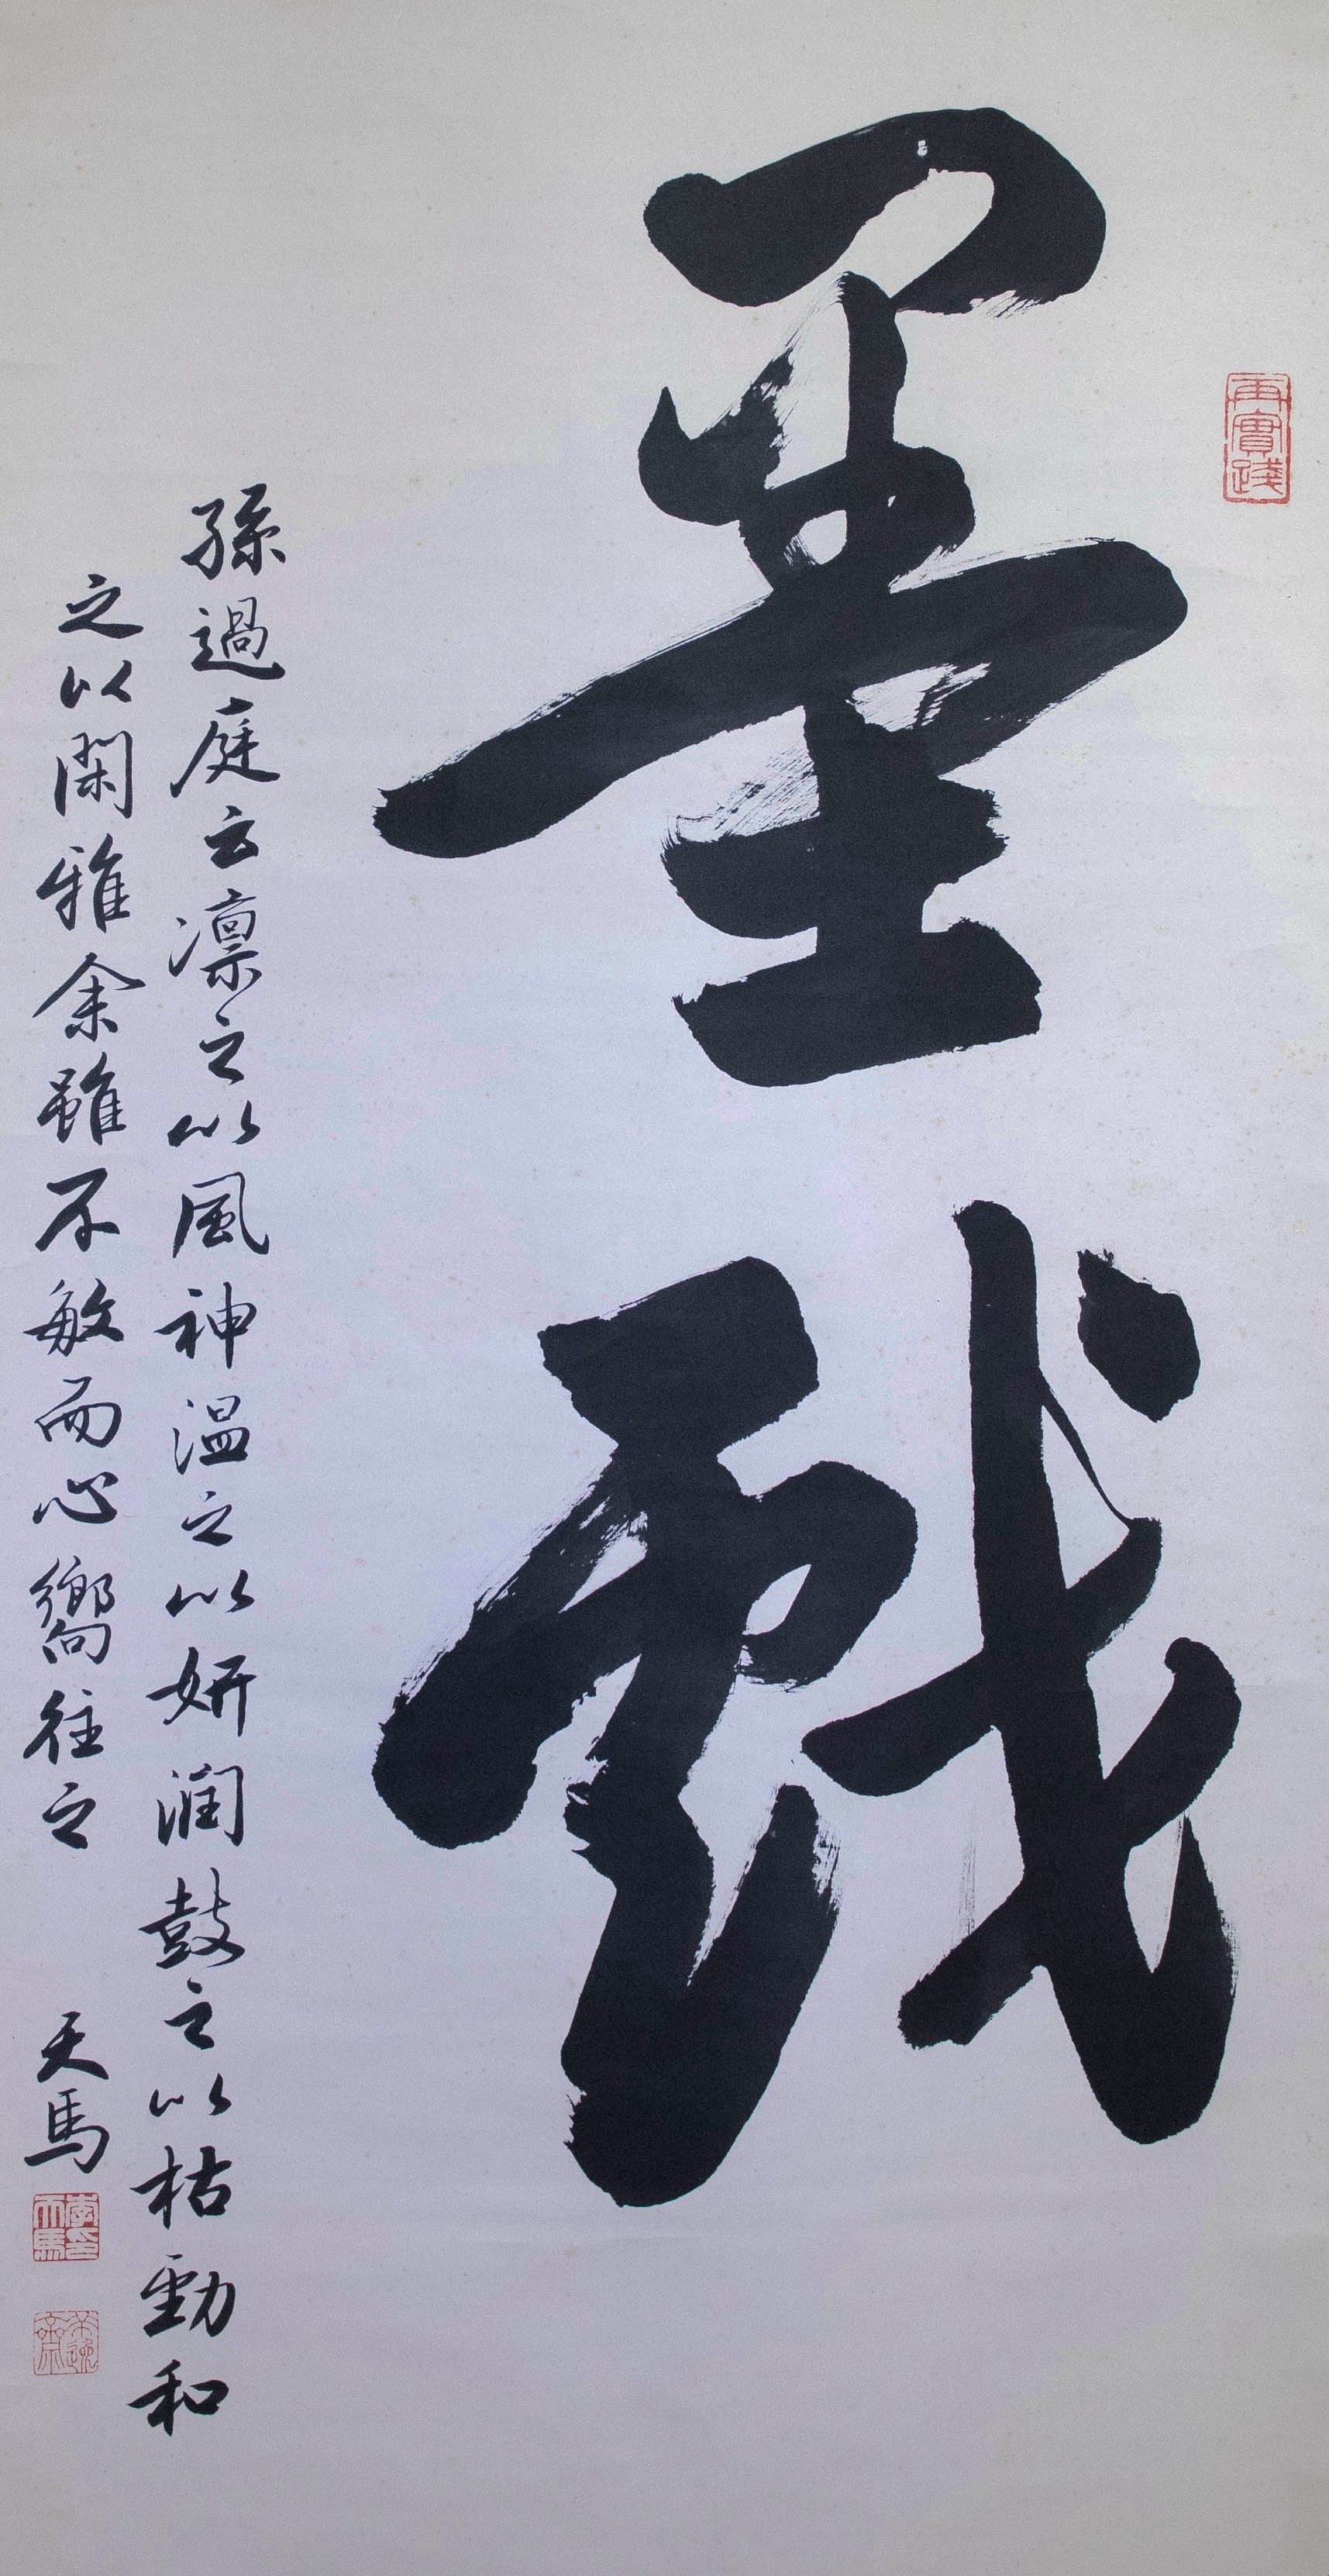 再實踐
墨戲
孫過庭云凛之以風神温之以妍潤鼓之以枯勁和
之以閑雅余雖不敏而心嚮往之 天馬
李印天馬